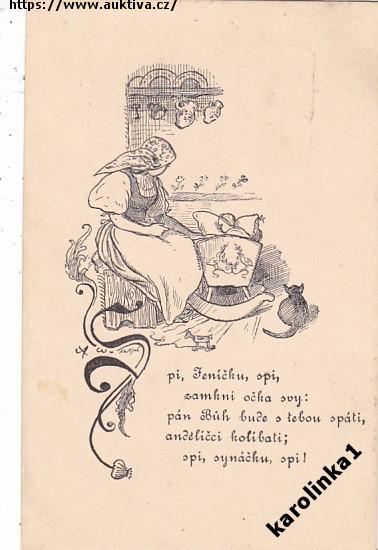 https://www.auktiva.cz/
Spi, Jeníčku, spi,
zamkni očka svy:
pán Bůh bude s tebou spáti,
andělíčci kolíbati;
spi, synáčku, spi!
karolinka1